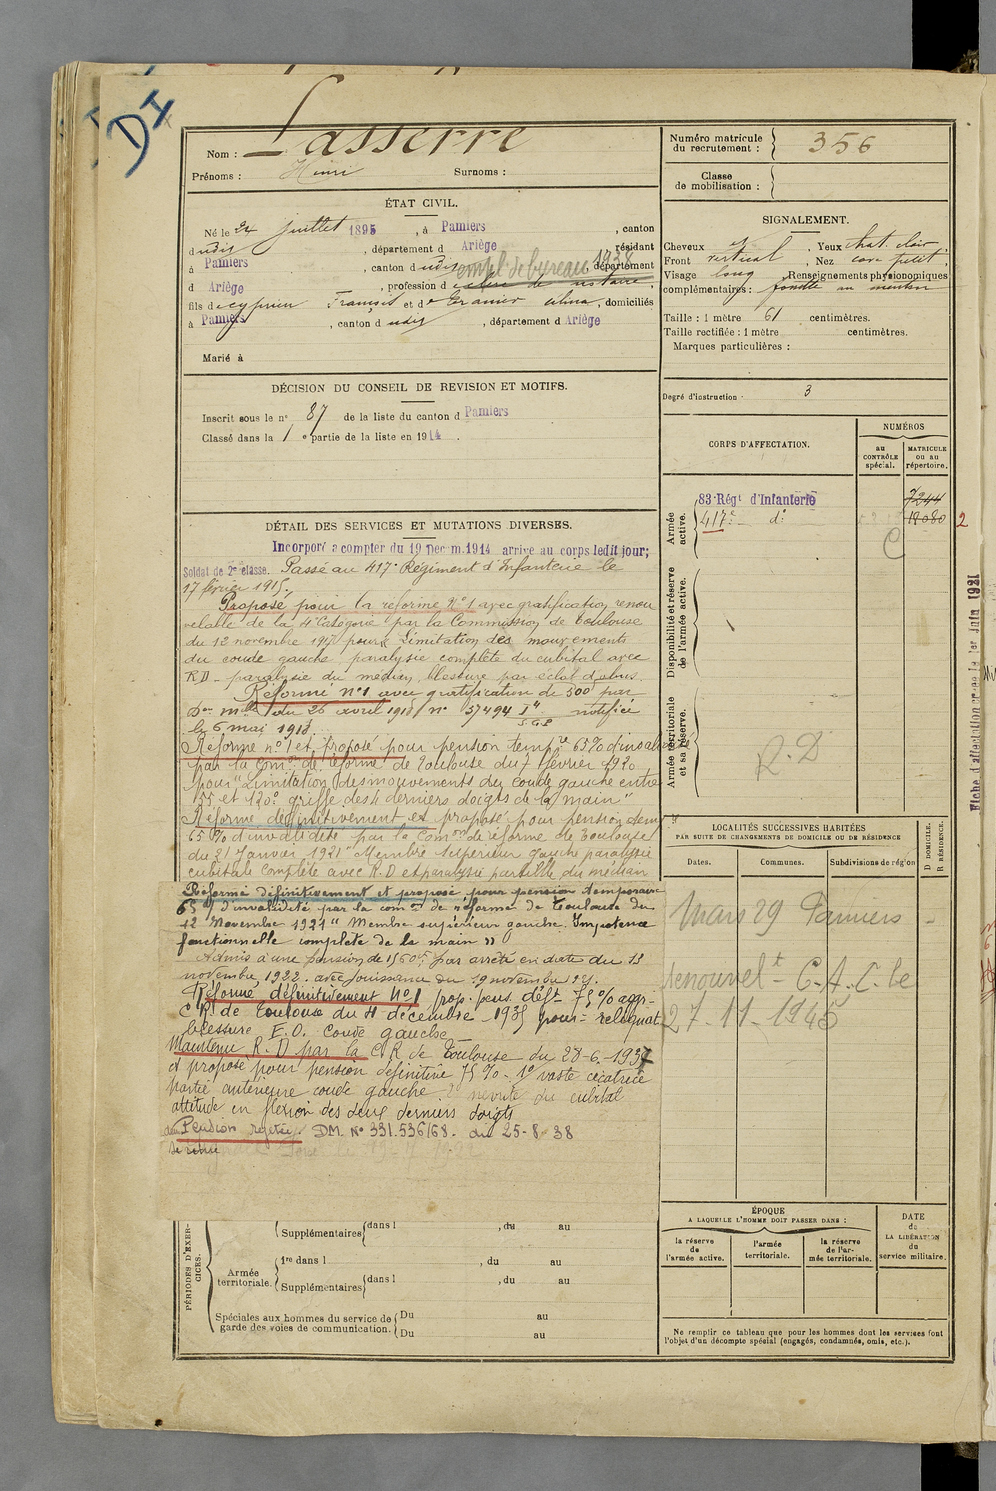 DI
Nom : Lasserre
Prénoms : Henri Surnoms :
Numéro matricule du recrutement : 356
Classe de mobilisation :
ÉTAT CIVIL.
Né le 24 juillet 1895, à Pamiers, canton
dudit, département d Ariège résidant
à Pamiers, canton dudit, département
empl de bureau 1938
d Ariège, profession d clerc de notaire,
fils de Cyprien François et d, domiciliés
à Pamiers, canton dudit, département d Ariège
Marié à
SIGNALEMENT.
Cheveux, Yeux chat. clair
Front vertical, Nez cave petit,
Visage long, Renseignements physionomiques
complémentaires : fossette au menton
Taille : 1 mètre 61 centimètres.
Taille rectifiée : 1 mètre centimètres.
Marques particulières :
Degré d'instruction : 3
DÉCISION DU CONSEIL DE REVISION ET MOTIFS.
Inscrit sous le n° 87 de la liste du canton d Pamiers
Classé dans la 1e partie de la liste en 1914.
CORPS D'AFFECTATION.
NUMÉROS
au CONTRÔLE spécial.
MATRICULE ou au répertoire.
Armée active.
83e Régt d'Infanterie 7244
417e d° 18080 2
C
Disponibilité et réserve de l'armée active.
Armée territoriale et sa réserve.
R. D
Fiche d'affectation créée le 1er Juin 1921
DÉTAIL DES SERVICES ET MUTATIONS DIVERSES.
Incorporé a compter du 19 Decem.1914 arrivé au corps ledit jour;
Soldat de 2e classe. Passé au 417e Régiment d'Infanterie le
17 février 1915.
Proposé pour la réforme N°1 avec gratification renou
velable de la 4e Catégorie par la Commission de Toulouse
du 12 novembre 1917 pour Limitation des mouvements
du coude gauche, paralysie complète du cubital avec
R.D - paralysie du médian, blessure par éclat d'obus.
Réformé n°1 avec gratification de 500 par
Don mlle du 26 avril 1918 n° 57494 notifiée
le 6 mai 1918.
Réformé n°1 et proposé pour pension tempre 65% d'invalidité
par la Comon de réforme de Toulouse du 7 février 1920
pour "Limitation des mouvements du coude gauche entre
55 et 120° griffe des 4 derniers doigts de la main"
Réformé définitivement et proposé pour pension temp
65% d'invalidité par la Comon de réforme de Toulouse
du 21 Janvier 1921 "Membre supérieur gauche paralysie
cubitale complète avec R.D et paralysie partielle du médian
Réformé définitivement et proposé pour pension temporaire
65% d'invalidité par la comon de réforme de Toulouse du
12 Novembre 1921 "Membre supérieur gauche. Impotence
fonctionnelle complète de la main"
Admis à une pension de 1560f par arrêté en date du 13
novembre 1922. avec jouissance du 19 novembre 1921.
Réformé définitivement N°1 prop. pens. déft - 75% aggr-
C.R. de Toulouse du 4 décembre 1935 pour = reliquat
blessure E.O. coude gauche -
Maintenu R.D par la CR de Toulouse - du 28-6-1937
et proposé pour pension définitive 75% - 1° vaste cicatrice
partie antérieure coude gauche. 2° névrite du cubital
attitude en flexion des deux derniers doigts
Pension rejetée DM. N° 331.536/68. du 25-8-38
LOCALITÉS SUCCESSIVES HABITÉES
PAR SUITE DE CHANGEMENTS DE DOMICILE OU DE RÉSIDENCE
Dates. Communes. Subdivisions de région
D DOMICILE.
R RÉSIDENCE.
Mars 29 Pamiers -
Renouvelt - C.A.C. le
27-11-1945
ÉPOQUE
A LAQUELLE L'HOMME DOIT PASSER DANS :
la réserve de l'armée active.
l'armée territoriale.
la réserve de l'armée territoriale.
DATE de LA LIBÉRATION du service militaire.
Ne remplir ce tableau que pour les hommes dont les services font
l'objet d'un décompte spécial (engagés, condamnés, omis, etc.).
PÉRIODES D'EXERCICES.
Supplémentaires dans l , du au
Armée territoriale.
1re dans l , du au
Supplémentaires dans l , du au
Spéciales aux hommes du service de garde des voies de communication.
Du au
Du au